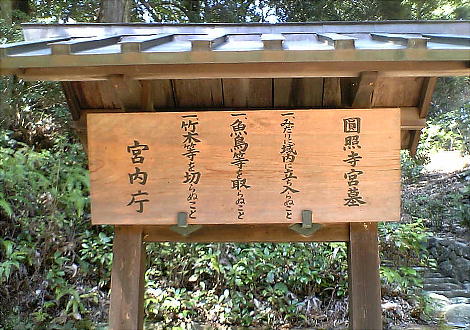 圓照寺宮墓
一みだりに域内に立ち入らぬこと
一魚鳥等を取らぬこと
一竹木等を切らぬこと
宮内庁